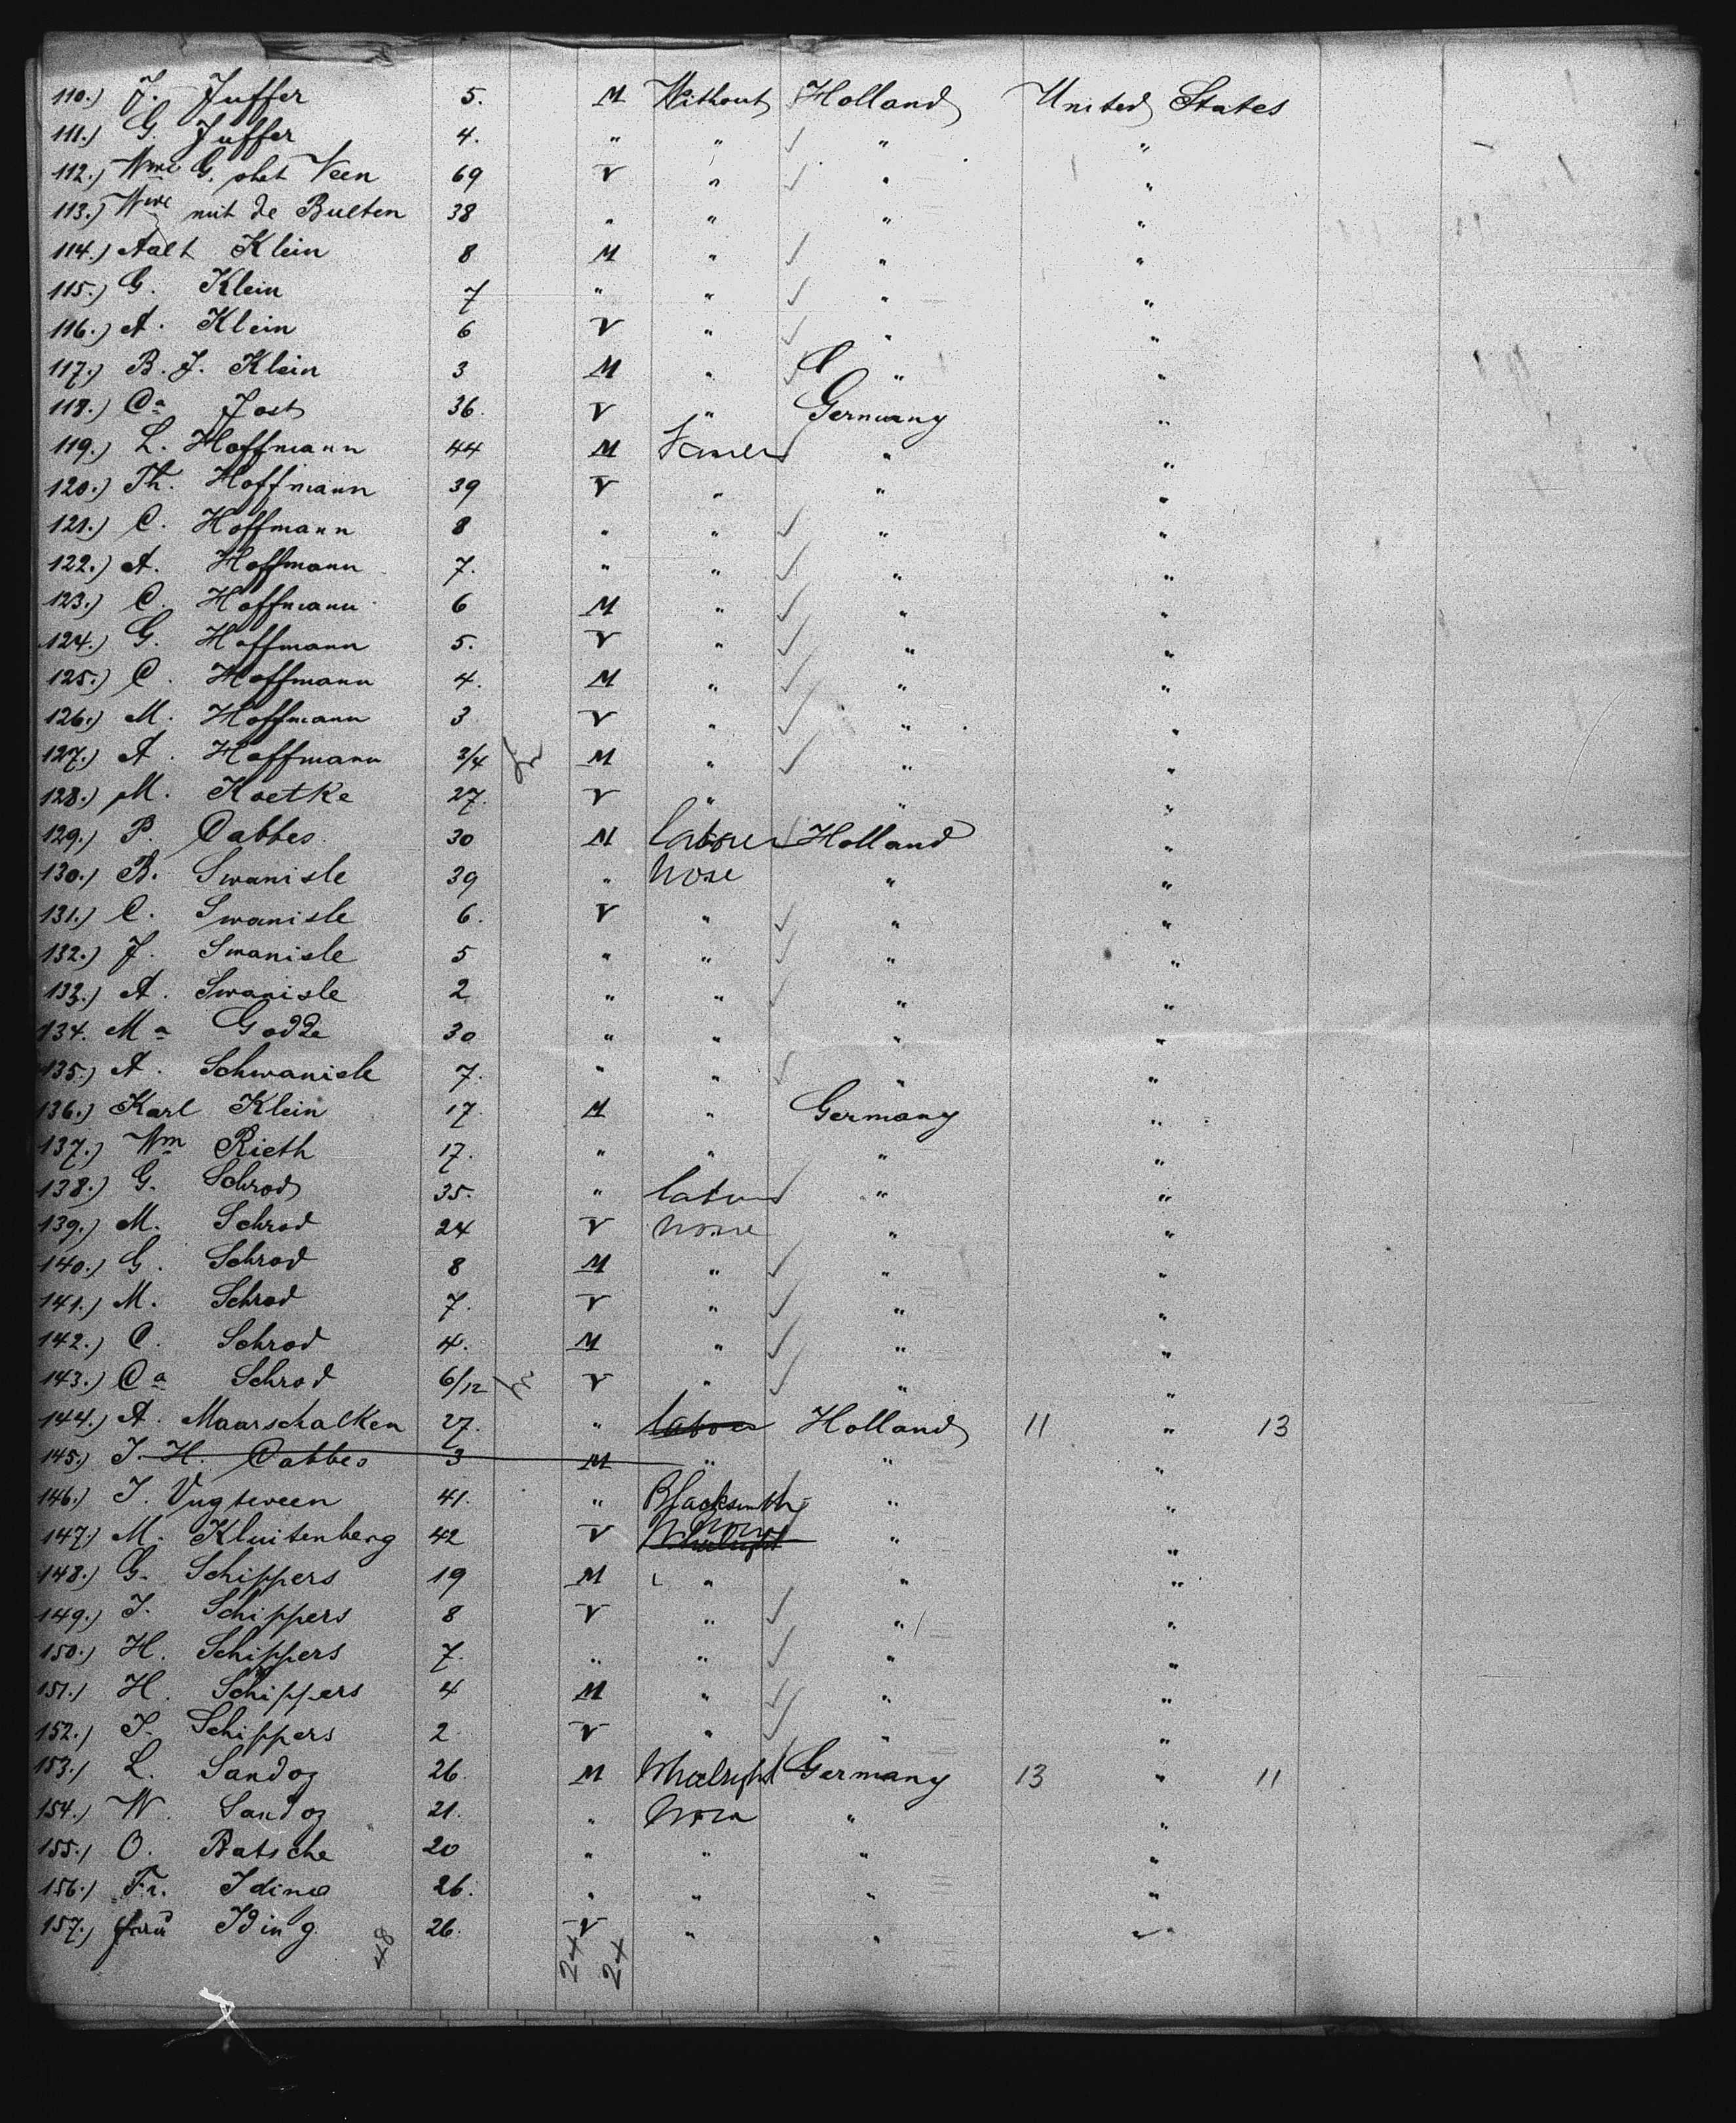 110.) J. Juffer 5. M Without Holland United States
111.) G. Juffer 4. " " " "
112.) Wwe G. Veen 69 V " " "
113.) Wwe de Bulten 38 " " " "
114.) Aalt Klein 8 M " " "
115.) G. Klein 7 " " " "
116.) A. Klein 6 V " " "
117.) B. J. Klein 3 M " " "
118.) Ca Jost 36. V " Germany "
119.) L. Hoffmann 44 M " "
120.) Th. Hoffmann 39 V " " "
121.) C. Hoffmann 8 " " " "
122.) A. Hoffmann 7. " " " "
123.) C. Hoffmann 6 M " " "
124.) G. Hoffmann 5. V " " "
125.) C. Hoffmann 4. M " " "
126.) M. Hoffmann 3 V " " "
127.) A. Hoffmann 3/4 M " " "
128.) M. Koetke 27. V " " "
129.) P. Cabbes 30 M labour Holland "
130.) B. Swanisle 39 " None " "
131.) C. Swanisle 6. V " " "
132.) J. Swanisle 5 " " " "
133.) A. Swanisle 2 " " " "
134. Ma Godde 30 " " " "
135.) A. Schwanisle 7. " " " "
136.) Karl Klein 17 M " Germany "
137.) Wm Rieth 17. " " " "
138.) G. Schrod 35. " labour " "
139.) M. Schrod 24 V none " "
140.) G. Schrod 8 M " " "
141.) M. Schrod 7. V " " "
142.) C. Schrod 4. M " " "
143.) Ca Schrod 6/12 V " " "
144.) A. Maarschalken 27. " labour Holland 11 " 13
145.) J. H. Cabbes 3 M " " "
146.) J. Vugteveen 41. " Blacksmith " "
147.) M. Kluitenberg 42 V none Whelright " "
148.) G. Schippers 19 M " " "
149.) J. Schippers 8 V " " "
150.) H. Schippers 7. " " " "
151.) H. Schippers 4 M " " "
152.) J. Schippers 2 V " " "
153.) L. Sandoz 26. M Whelright Germany 13 " 11
154.) W. Sandoz 21. " None " "
155.) O. Batsche 20 " " " "
156.) Fr. Iding 26. " " " "
157.) frau Iding 26. V " " "
48 24 24